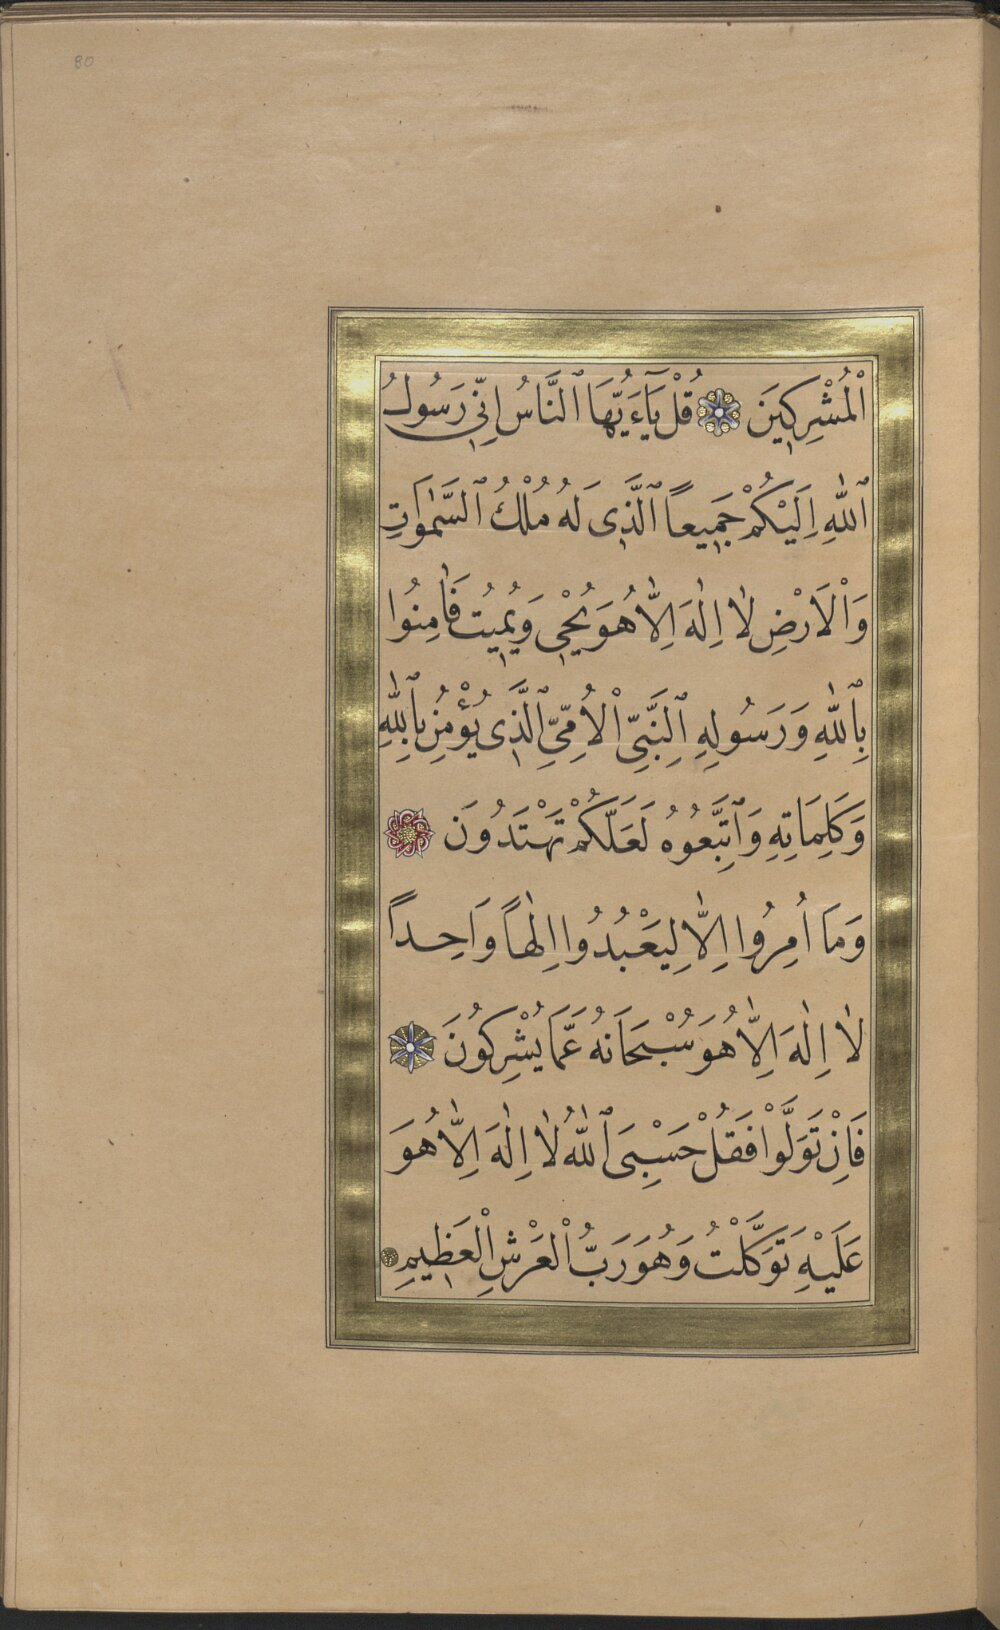 80
ٱلْمُشْرِكِينَ قُلْ يَآءَيُّهَا ٱلنَّاسُ اِنِّي رَسُولُ
ٱللّٰهِ اِلَيْكُمْ جَمِيعاً ٱلَّذِى لَهُ مُلْكُ ٱلسَّمٰوَاتِ
وَٱلْاَرْضِ لَٓا اِلٰهَ اِلَّا هُوَ يُحْيِى وَيُمِيتُ فَاٰمِنُوا
بِٱللّٰهِ وَرَسُولِهِ ٱلنَّبِيِّ ٱلْاُمِّيِّ ٱلَّذِى يُؤْمِنُ بِٱللّٰهِ
وَكَلِمَاتِهِ وَٱتَّبِعُوهُ لَعَلَّكُمْ تَهْتَدُونَ
وَمَا اُمِرُوا اِلَّا لِيَعْبُدُوا اِلٰهاً وَاحِداً
لَٓا اِلٰهَ اِلَّا هُوَ سُبْحَانَهُ عَمَّا يُشْرِكُونَ
فَاِنْ تَوَلَّوْا فَقُلْ حَسْبِىَ ٱللّٰهُ لَٓا اِلٰهَ اِلَّا هُوَ
عَلَيْهِ تَوَكَّلْتُ وَهُوَ رَبُّ ٱلْعَرْشِ ٱلْعَظِيمِ